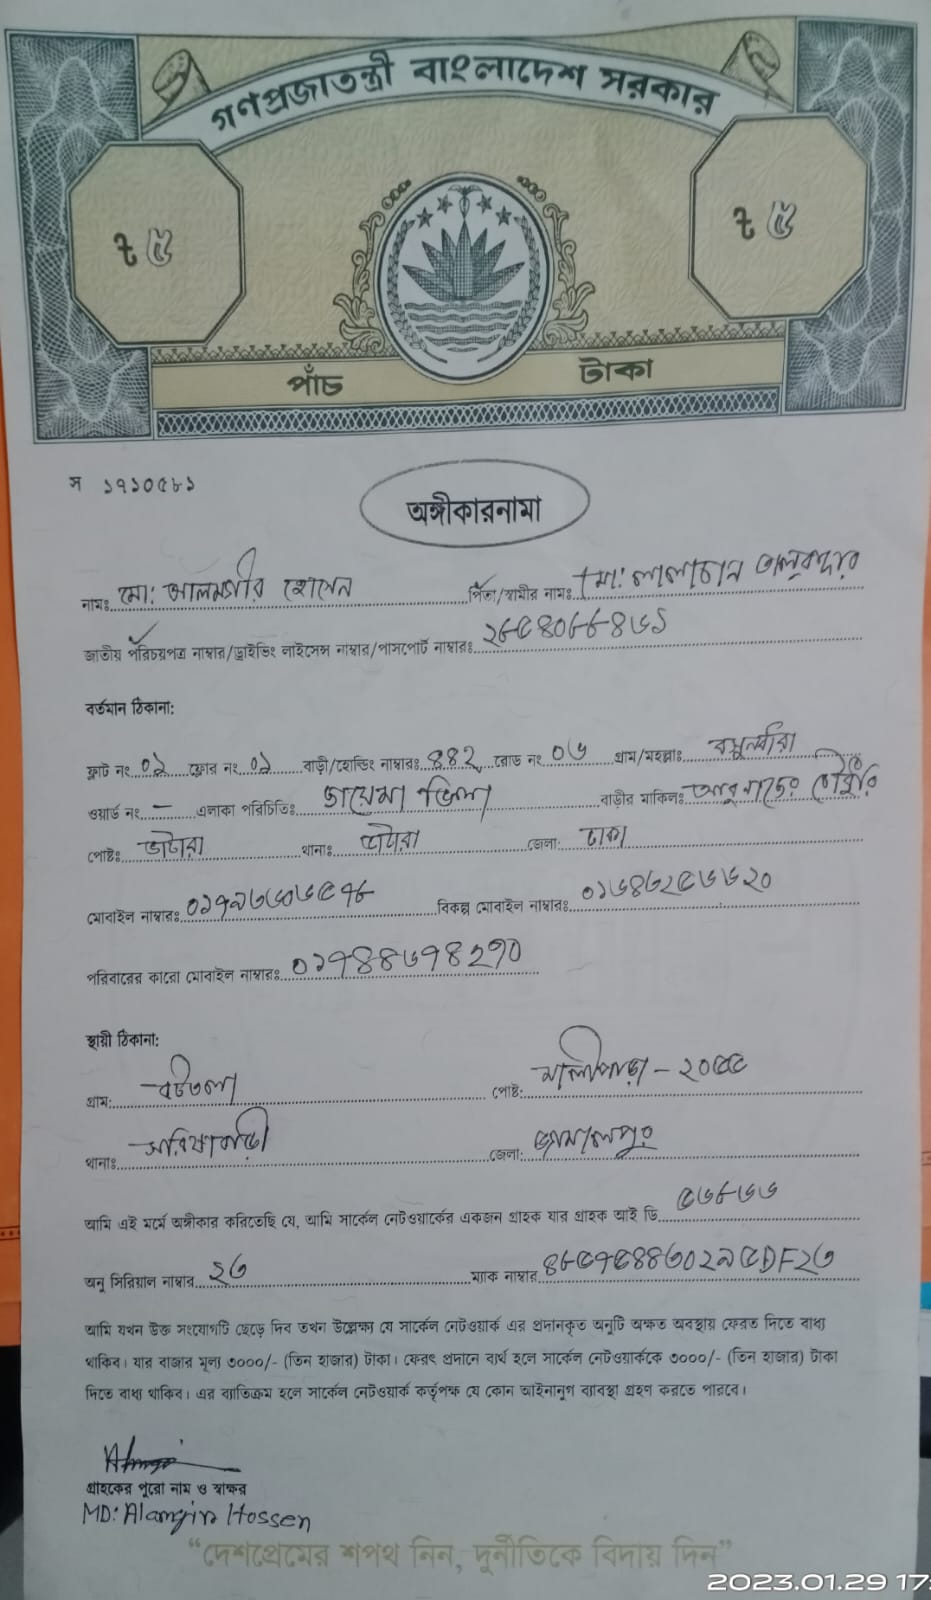 গণপ্রজাতন্ত্রী বাংলাদেশ সরকার
ট ৫ ট ৫
পাঁচ টাকা
স ১৭১০৫৮১
অঙ্গীকারনামা
নামঃ মো: আলমগীর হোসেন পিতা/স্বামীর নামঃ মো: লালচান তালুকদার
জাতীয় পরিচয়পত্র নাম্বার/ড্রাইভিং লাইসেন্স নাম্বার/পাসপোর্ট নাম্বারঃ
বর্তমান ঠিকানা:
ফ্লাট নং ০১ ফ্লোর নং ০১ বাড়ী/হোল্ডিং নাম্বারঃ ৪৪২ রোড নং ০৬ গ্রাম/মহল্লাঃ বসুন্ধরা
ওয়ার্ড নং – এলাকা পরিচিতিঃ ভিলা বাড়ীর মালিকঃ
পোষ্টঃ ভাটারা থানাঃ ভাটারা জেলা: ঢাকা
মোবাইল নাম্বারঃ বিকল্প মোবাইল নাম্বারঃ
পরিবারের কারো মোবাইল নাম্বারঃ
স্থায়ী ঠিকানা:
গ্রাম: বটতলা পোষ্ট:
থানাঃ সরিষাবাড়ী জেলা: জামালপুর
আমি এই মর্মে অঙ্গীকার করিতেছি যে, আমি সার্কেল নেটওয়ার্কের একজন গ্রাহক যার গ্রাহক আই ডি
অনু সিরিয়াল নাম্বার ২৩ ম্যাক নাম্বার
আমি যখন উক্ত সংযোগটি ছেড়ে দিব তখন উল্লেক্ষ্য যে সার্কেল নেটওয়ার্ক এর প্রদানকৃত অনুটি অক্ষত অবস্থায় ফেরত দিতে বাধ্য
থাকিব। যার বাজার মূল্য ৩০০০/- (তিন হাজার) টাকা। ফেরৎ প্রদানে ব্যর্থ হলে সার্কেল নেটওয়ার্ককে ৩০০০/- (তিন হাজার) টাকা
দিতে বাধ্য থাকিব। এর ব্যতিক্রম হলে সার্কেল নেটওয়ার্ক কর্তৃপক্ষ যে কোন আইনানুগ ব্যাবস্থা গ্রহণ করতে পারবে।
গ্রাহকের পুরো নাম ও স্বাক্ষর
MD: Alamgir Hossen
“দেশপ্রেমের শপথ নিন, দুর্নীতিকে বিদায় দিন”
2023.01.29 17: